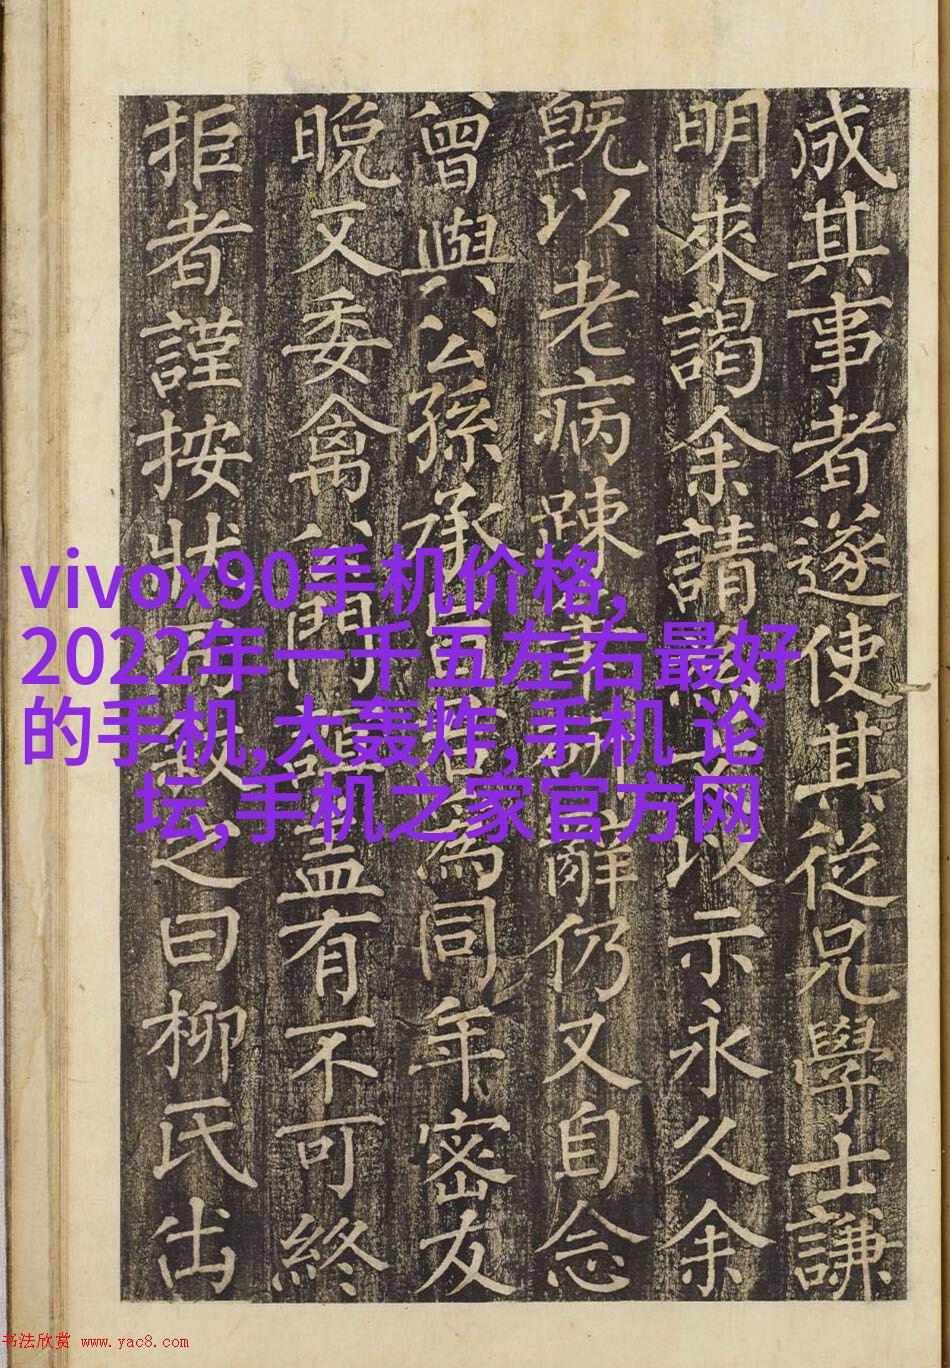 成其事者遂使其從兄學士謙
明來謁余請以示永久余
既以老病踈辭仍又自念
曾與公孫承為同年密友
晚又委禽公門盖有不可終
拒者謹按狀而敘之曰柳氏出
vivox90手机价格,
2022年一千五左右最好
的手机,大轰炸,手机 论
坛,手机之家官方网
书法欣赏 www.yac8.com